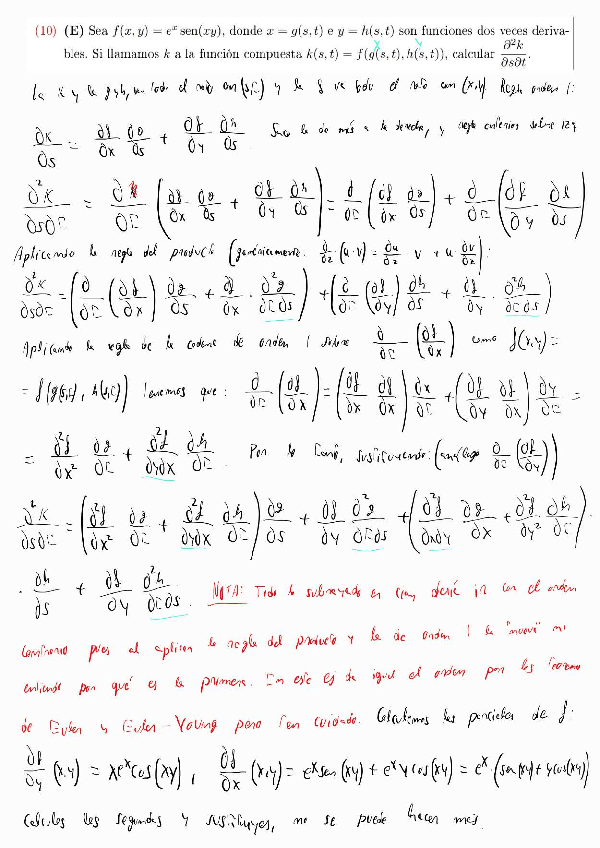 (10) (E) Sea f(x, y) = e^x sen(xy), donde x = g(s, t) e y = h(s, t) son funciones dos veces deriva-
bles. Si llamamos k a la función compuesta k(s, t) = f(g(s, t), h(s, t)), calcular ∂²k/∂s∂t.
x y
La x y la g y h, todo el rato con (s,t) y la f va todo el rato con (x,y). Regla orden 1:
∂k/∂s = ∂f/∂x ∂g/∂s + ∂f/∂y ∂h/∂s. la de más a la derecha, y
∂²k/∂s∂t = ∂/∂t (∂f/∂x ∂g/∂s + ∂f/∂y ∂h/∂s) = ∂/∂t (∂f/∂x ∂g/∂s) + ∂/∂t (∂f/∂y ∂h/∂s)
Aplicando la regla del producto (genéricamente: ∂/∂z (u·v) = ∂u/∂z v + u·∂v/∂z):
∂²k/∂s∂t = (∂/∂t (∂f/∂x) ∂g/∂s + ∂f/∂x · ∂²g/∂t∂s) + (∂/∂t (∂f/∂y) ∂h/∂s + ∂f/∂y · ∂²h/∂t∂s)
Aplicando la regla de la cadena de orden 1 sobre ∂/∂t (∂f/∂x) como f(x,y) =
= f(g(s,t), h(s,t)) tenemos que: ∂/∂t (∂f/∂x) = (∂f/∂x ∂f/∂x) ∂x/∂t + (∂f/∂y ∂f/∂x) ∂y/∂t =
= ∂²f/∂x² ∂g/∂t + ∂²f/∂y∂x ∂h/∂t. Por lo tanto, sustituyendo: (análogo ∂/∂t (∂f/∂y))
∂²k/∂s∂t = (∂²f/∂x² ∂g/∂t + ∂²f/∂y∂x ∂h/∂t) ∂g/∂s + ∂f/∂y ∂²g/∂t∂s + (∂²f/∂x∂y ∂g/∂x + ∂²f/∂y² ∂h/∂t) ·
· ∂h/∂s + ∂f/∂y ∂²h/∂t∂s. NOTA: Todo lo subrayado en cian debería ir con el orden
contrario pues al aplicar la regla del producto y la de orden 1 la "nueva" no
entiendo por qué es la primera. En este ej da igual el orden por los teorema
de Euler y Euler-Young pero ten cuidado. Calculemos las parciales de f:
∂f/∂y (x,y) = xe^x cos(xy), ∂f/∂x (x,y) = e^x sen(xy) + e^x y cos(xy) = e^x · (sen(xy) + y cos(xy))
Calculas las segundas y sustituyes, no se puede hacer más.